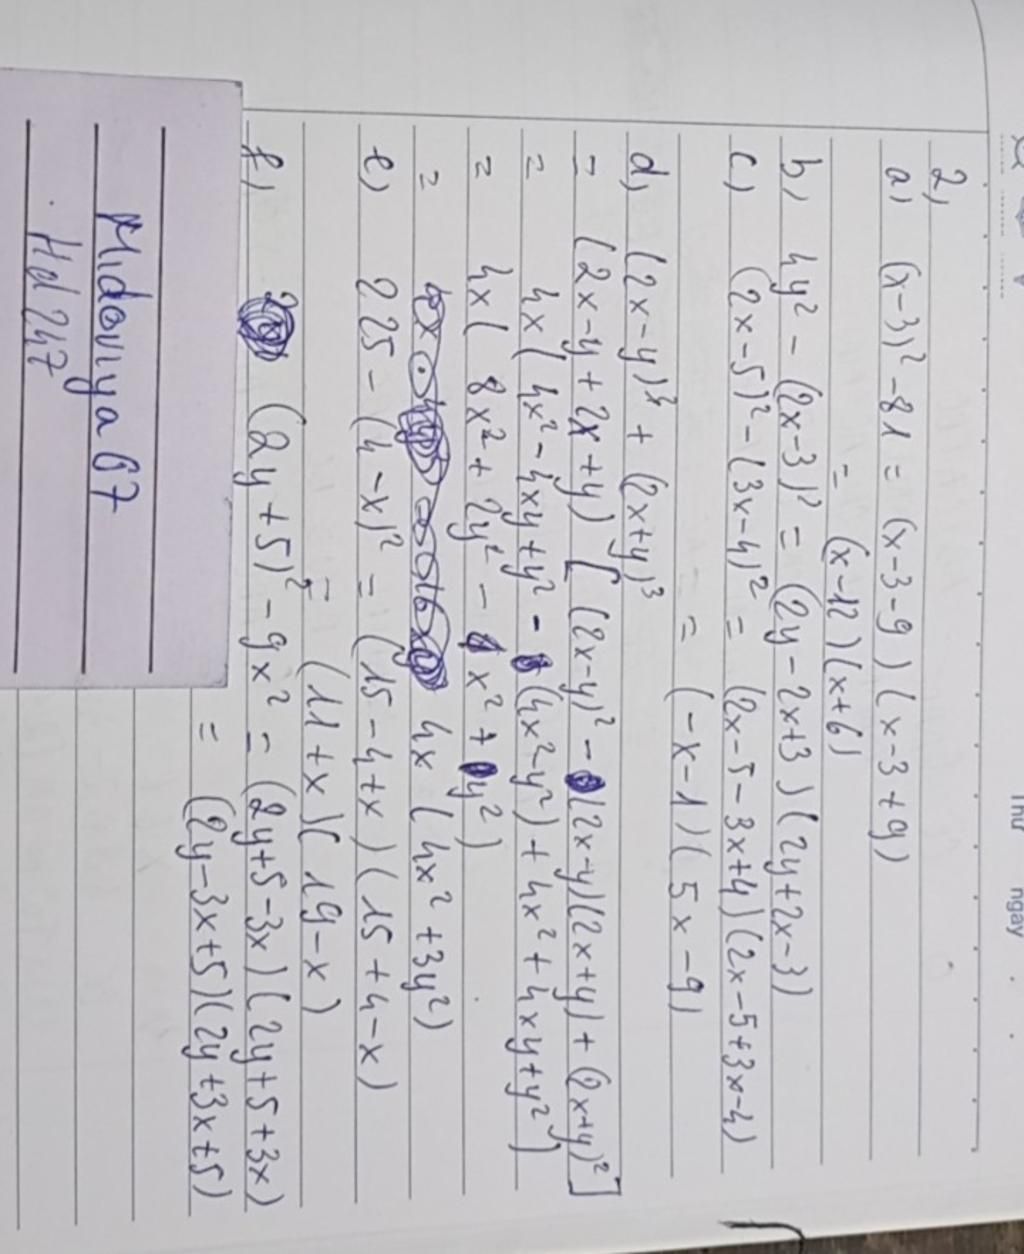 Thứ ngày . .
2,
a) (x-3)² - 81 = (x-3-9)(x-3+9)
= (x-12)(x+6)
b) 4y² - (2x-3)² = (2y-2x+3)(2y+2x-3)
c) (2x-5)² - (3x-4)² = (2x-5-3x+4)(2x-5+3x-4)
= (-x-1)(5x-9)
d, (2x-y)³ + (2x+y)³
= (2x-y+2x+y)[(2x-y)² - (2x-y)(2x+y) + (2x+y)²]
= 4x(4x²-4xy+y² - (4x²-y²) + 4x²+4xy+y²]
= 4x(8x²+2y² - x² + y²)
= 4x(4x²+3y²)
e) 225 - (4-x)² = (15-4+x)(15+4-x)
= (11+x)(19-x)
f, (2y+5)² - 9x² = (2y+5-3x)(2y+5+3x)
= (2y-3x+5)(2y+3x+5)
Midoriya 67
Hd 247